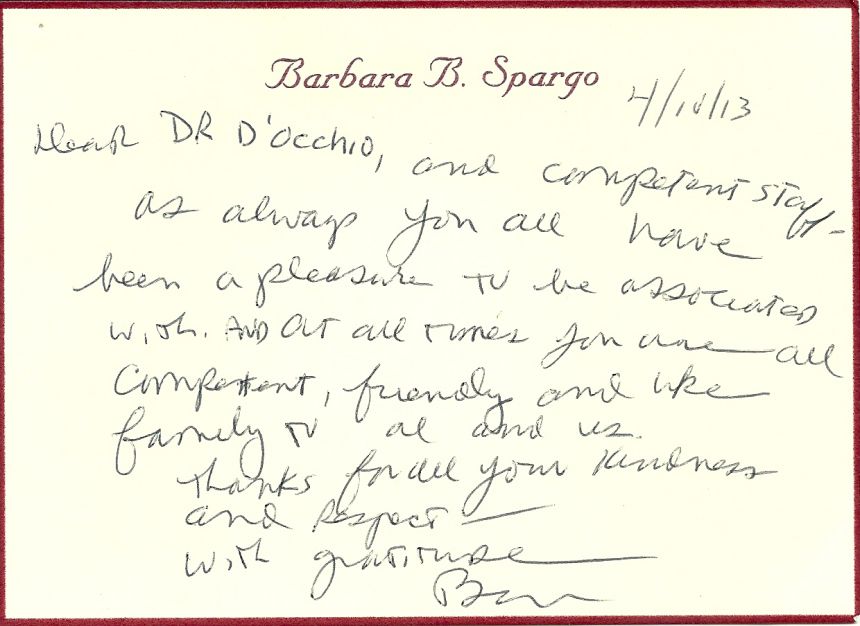 Barbara B. Spargo
4/10/13
Dear DR D'Occhio, and competent staff-
as always you all have
been a pleasure to be associated
with. AND at all times you are all
Competent, friendly and like
family to al and us.
Thanks for all your kindness
and respect —
with gratitude